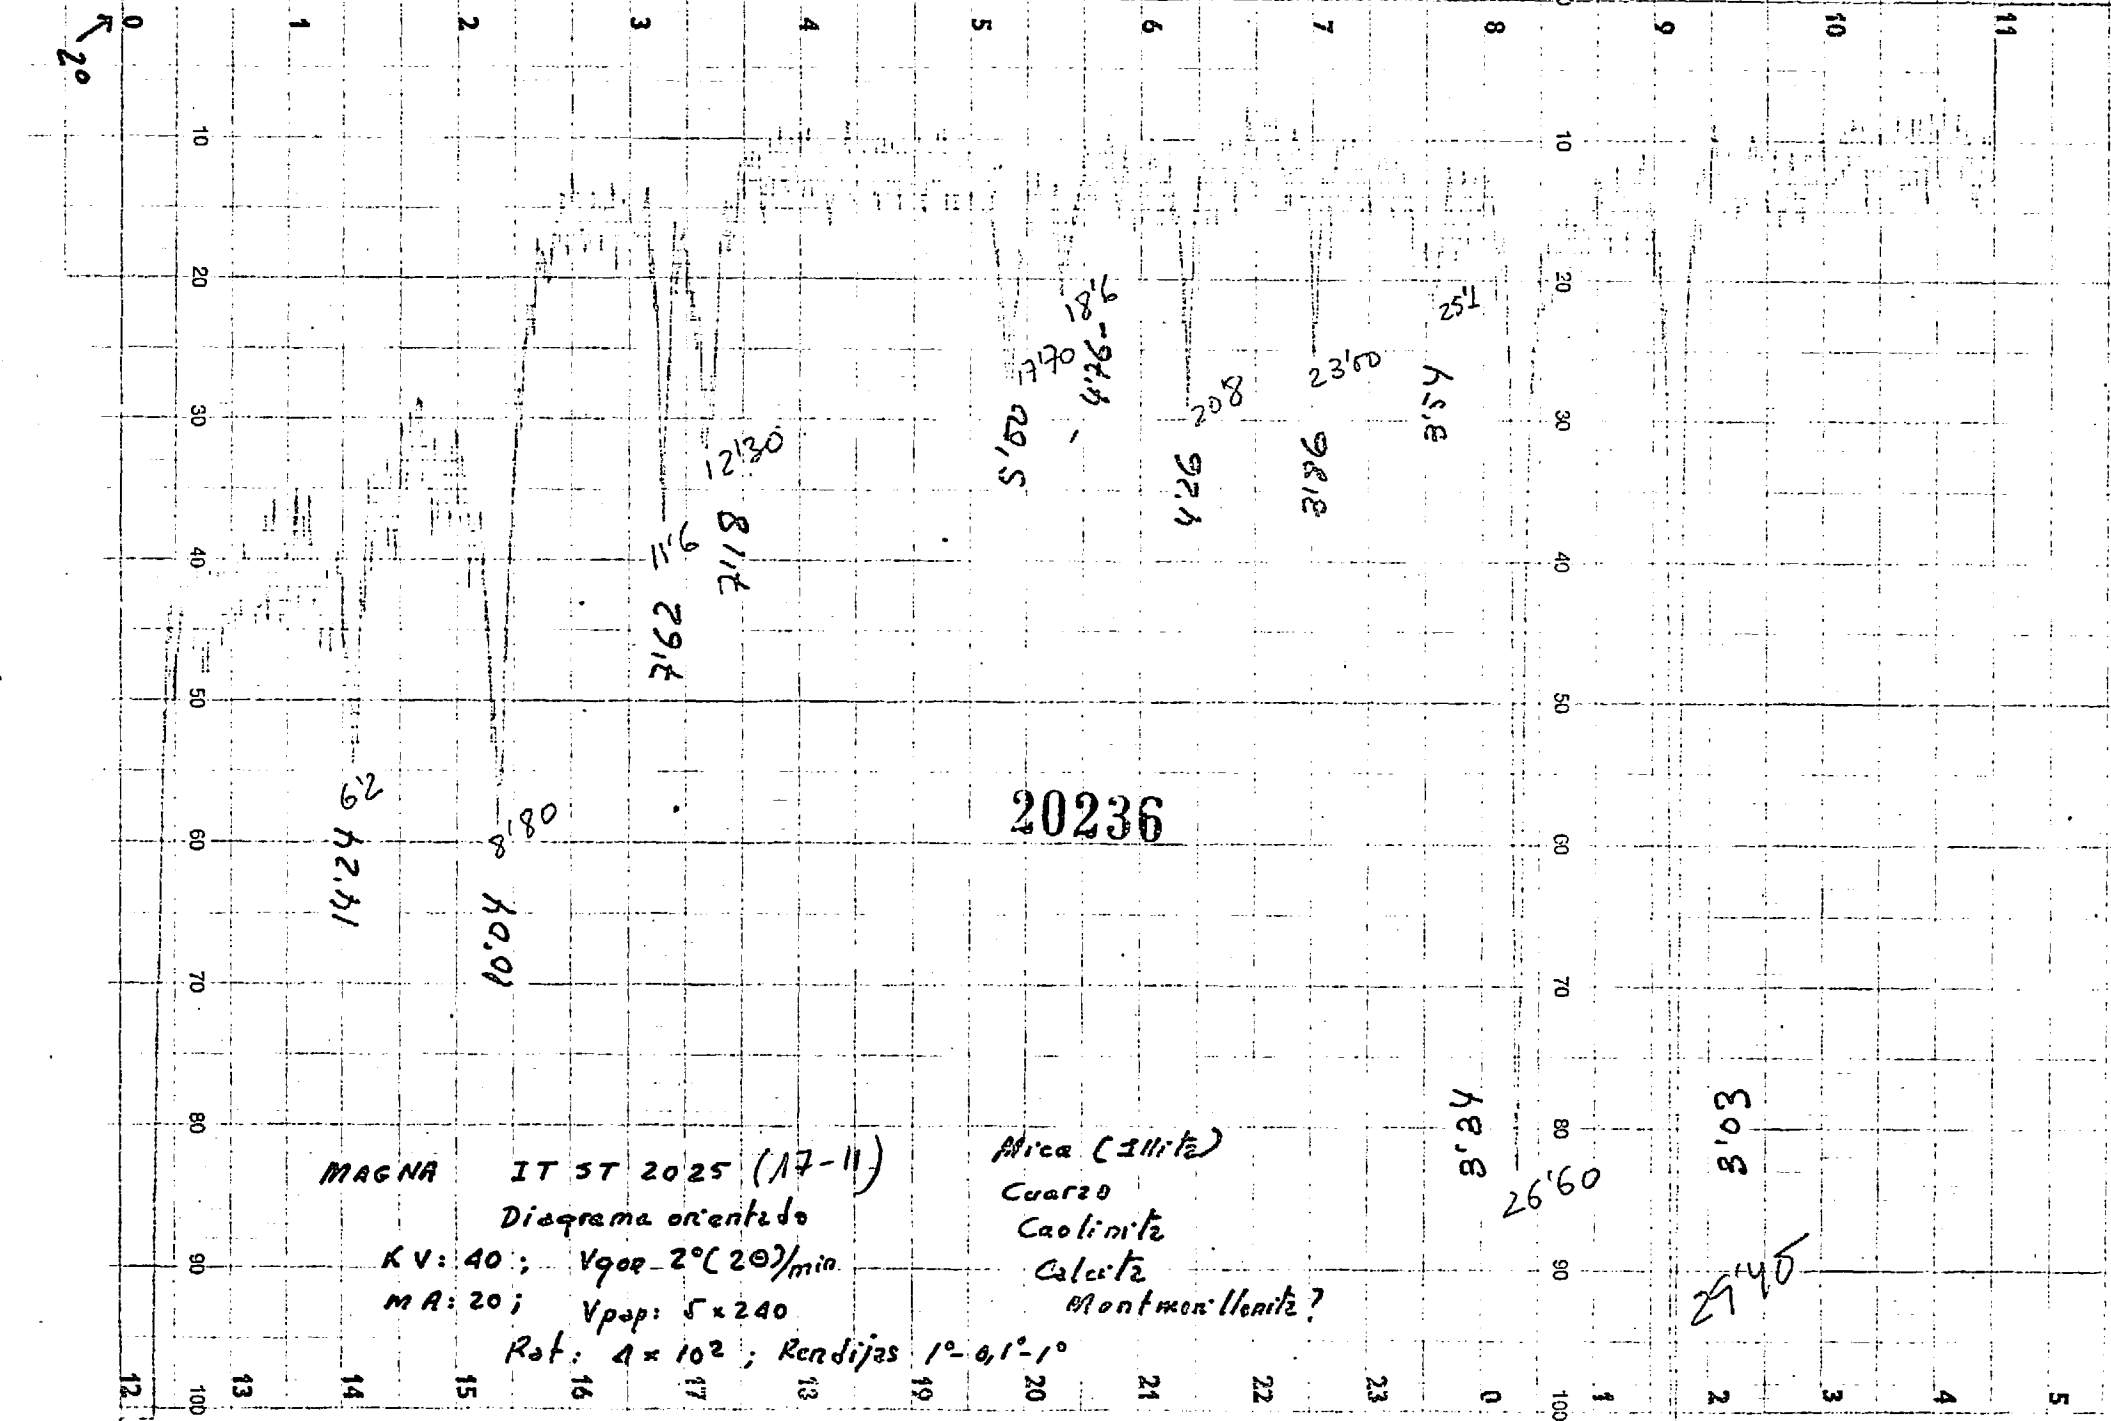 0 1 2 3 4 5 6 7 8 9 10 11
2º
10 10
20 20
30 30
40 40
50 50
60 60
70 70
80 80
90 90
100 100
6'2
14'24
8'80
10'04
11'6
7'62
12'30
7'18
17'70
5'00
18'6
4'76
20'8
4'26
23'00
3'86
25'1
3'54
26'60
3'34
29'45
3'03
20236
MAGNA IT ST 2025 (17-11)
Diagrama orientado
KV: 40; Vgon 2º(2θ)/min
MA: 20; Vpap: 5 x 240
Rat: 4 x 10²; Rendijas 1º-0,1º-1º
Mica (Illita)
Cuarzo
Caolinita
Calcita
Montmorillonita?
12 13 14 15 16 17 18 19 20 21 22 23 0 1 2 3 4 5